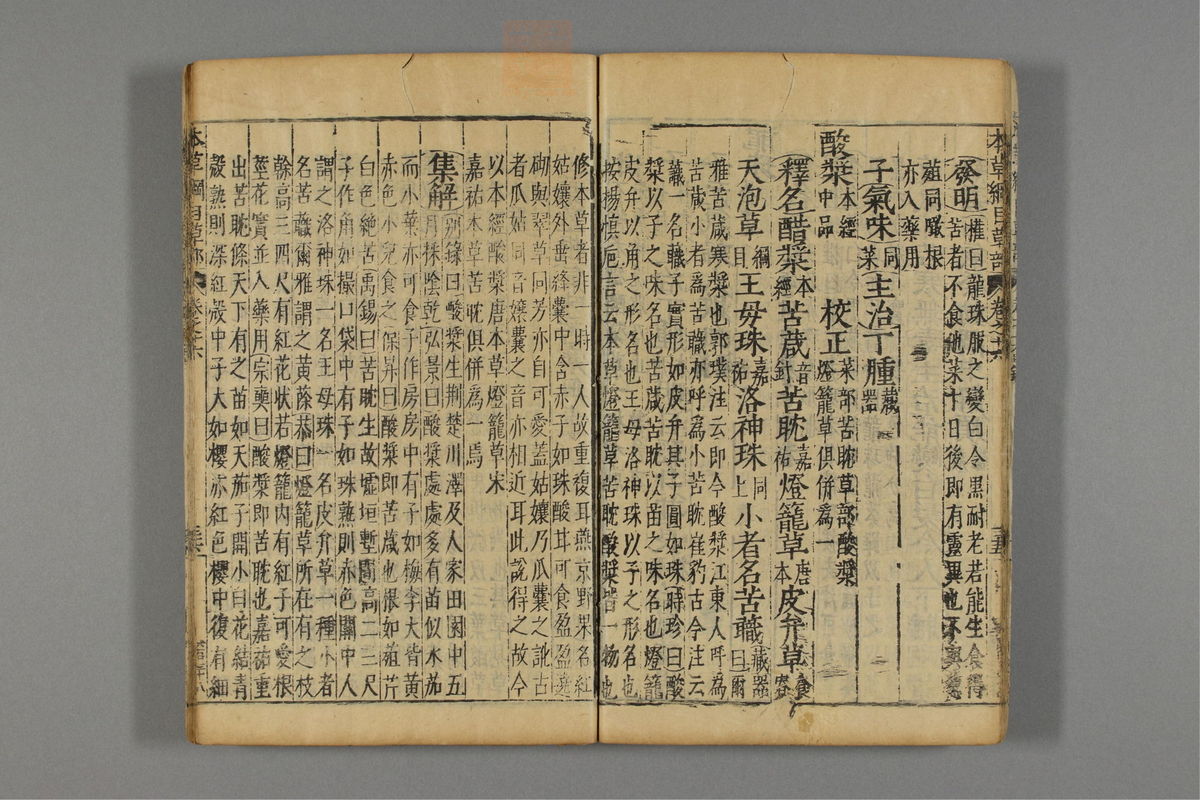 本草綱目草部 卷之十六
發明 權曰龍珠服之變白令黑耐老若能生食得
苦者不食他菜十日後即有靈異也不與葱
薤同啖根
亦入藥用
子氣味 同菜 主治 丁腫 藏器
酸漿 本經中品 校正 菜部苦耽草部酸漿
燈籠草俱併為一
釋名 醋漿 本經 苦葴 音針 苦耽 嘉祐 燈籠草 唐本 皮弁草 食療
天泡草 綱目 王母珠 嘉祐 洛神珠 同上 小者名苦蘵 藏器曰爾
雅苦葴寒漿也郭璞注云即今酸漿江東人呼為
苦葴小者為苦蘵亦呼為小苦耽崔豹古今注云
蘵一名蘵子實形如皮弁其子圓如珠時珍曰酸
漿以子之味名也苦葴苦耽以苗之味名也燈籠
皮弁以角之形名也王母洛神珠以子之形名也
按揚慎巵言云本草燈籠草苦耽酸漿皆一物也
修本草者非一時一人故重複耳燕京野果名紅
姑孃外垂絳囊中含赤子如珠酸甘可食盈盈遶
砌與翠草同芳亦自可愛蓋姑孃乃瓜囊之訛古
者瓜姑同音孃囊之音亦相近耳此說得之故今
以本經酸漿唐本草燈籠草宋
嘉祐本草苦耽俱併為一焉
集解 别錄曰酸漿生荆楚川澤及人家田園中五
月採陰乾弘景曰酸漿處處多有苗似水茄
而小葉亦可食子作房房中有子如梅李大皆黃
赤色小兒食之保昇曰酸漿即苦葴也根如葅芹
白色絕苦禹錫曰苦耽生故墟垣塹間高二三尺
子作角如撮口袋中有子如珠熟則赤色關中人
謂之洛神珠一名王母珠一名皮弁草一種小者
名苦蘵爾雅謂之黃蒢恭曰燈籠草所在有之枝
幹高三四尺有紅花狀若燈籠內有紅子可愛根
莖花實並入藥用宗奭曰酸漿即苦耽也嘉祐重
出苦耽條天下有之苗如天茄子開小白花結青
殼熟則深紅殼中子大如櫻亦紅色櫻中復有細
本草綱目草部 卷之十六